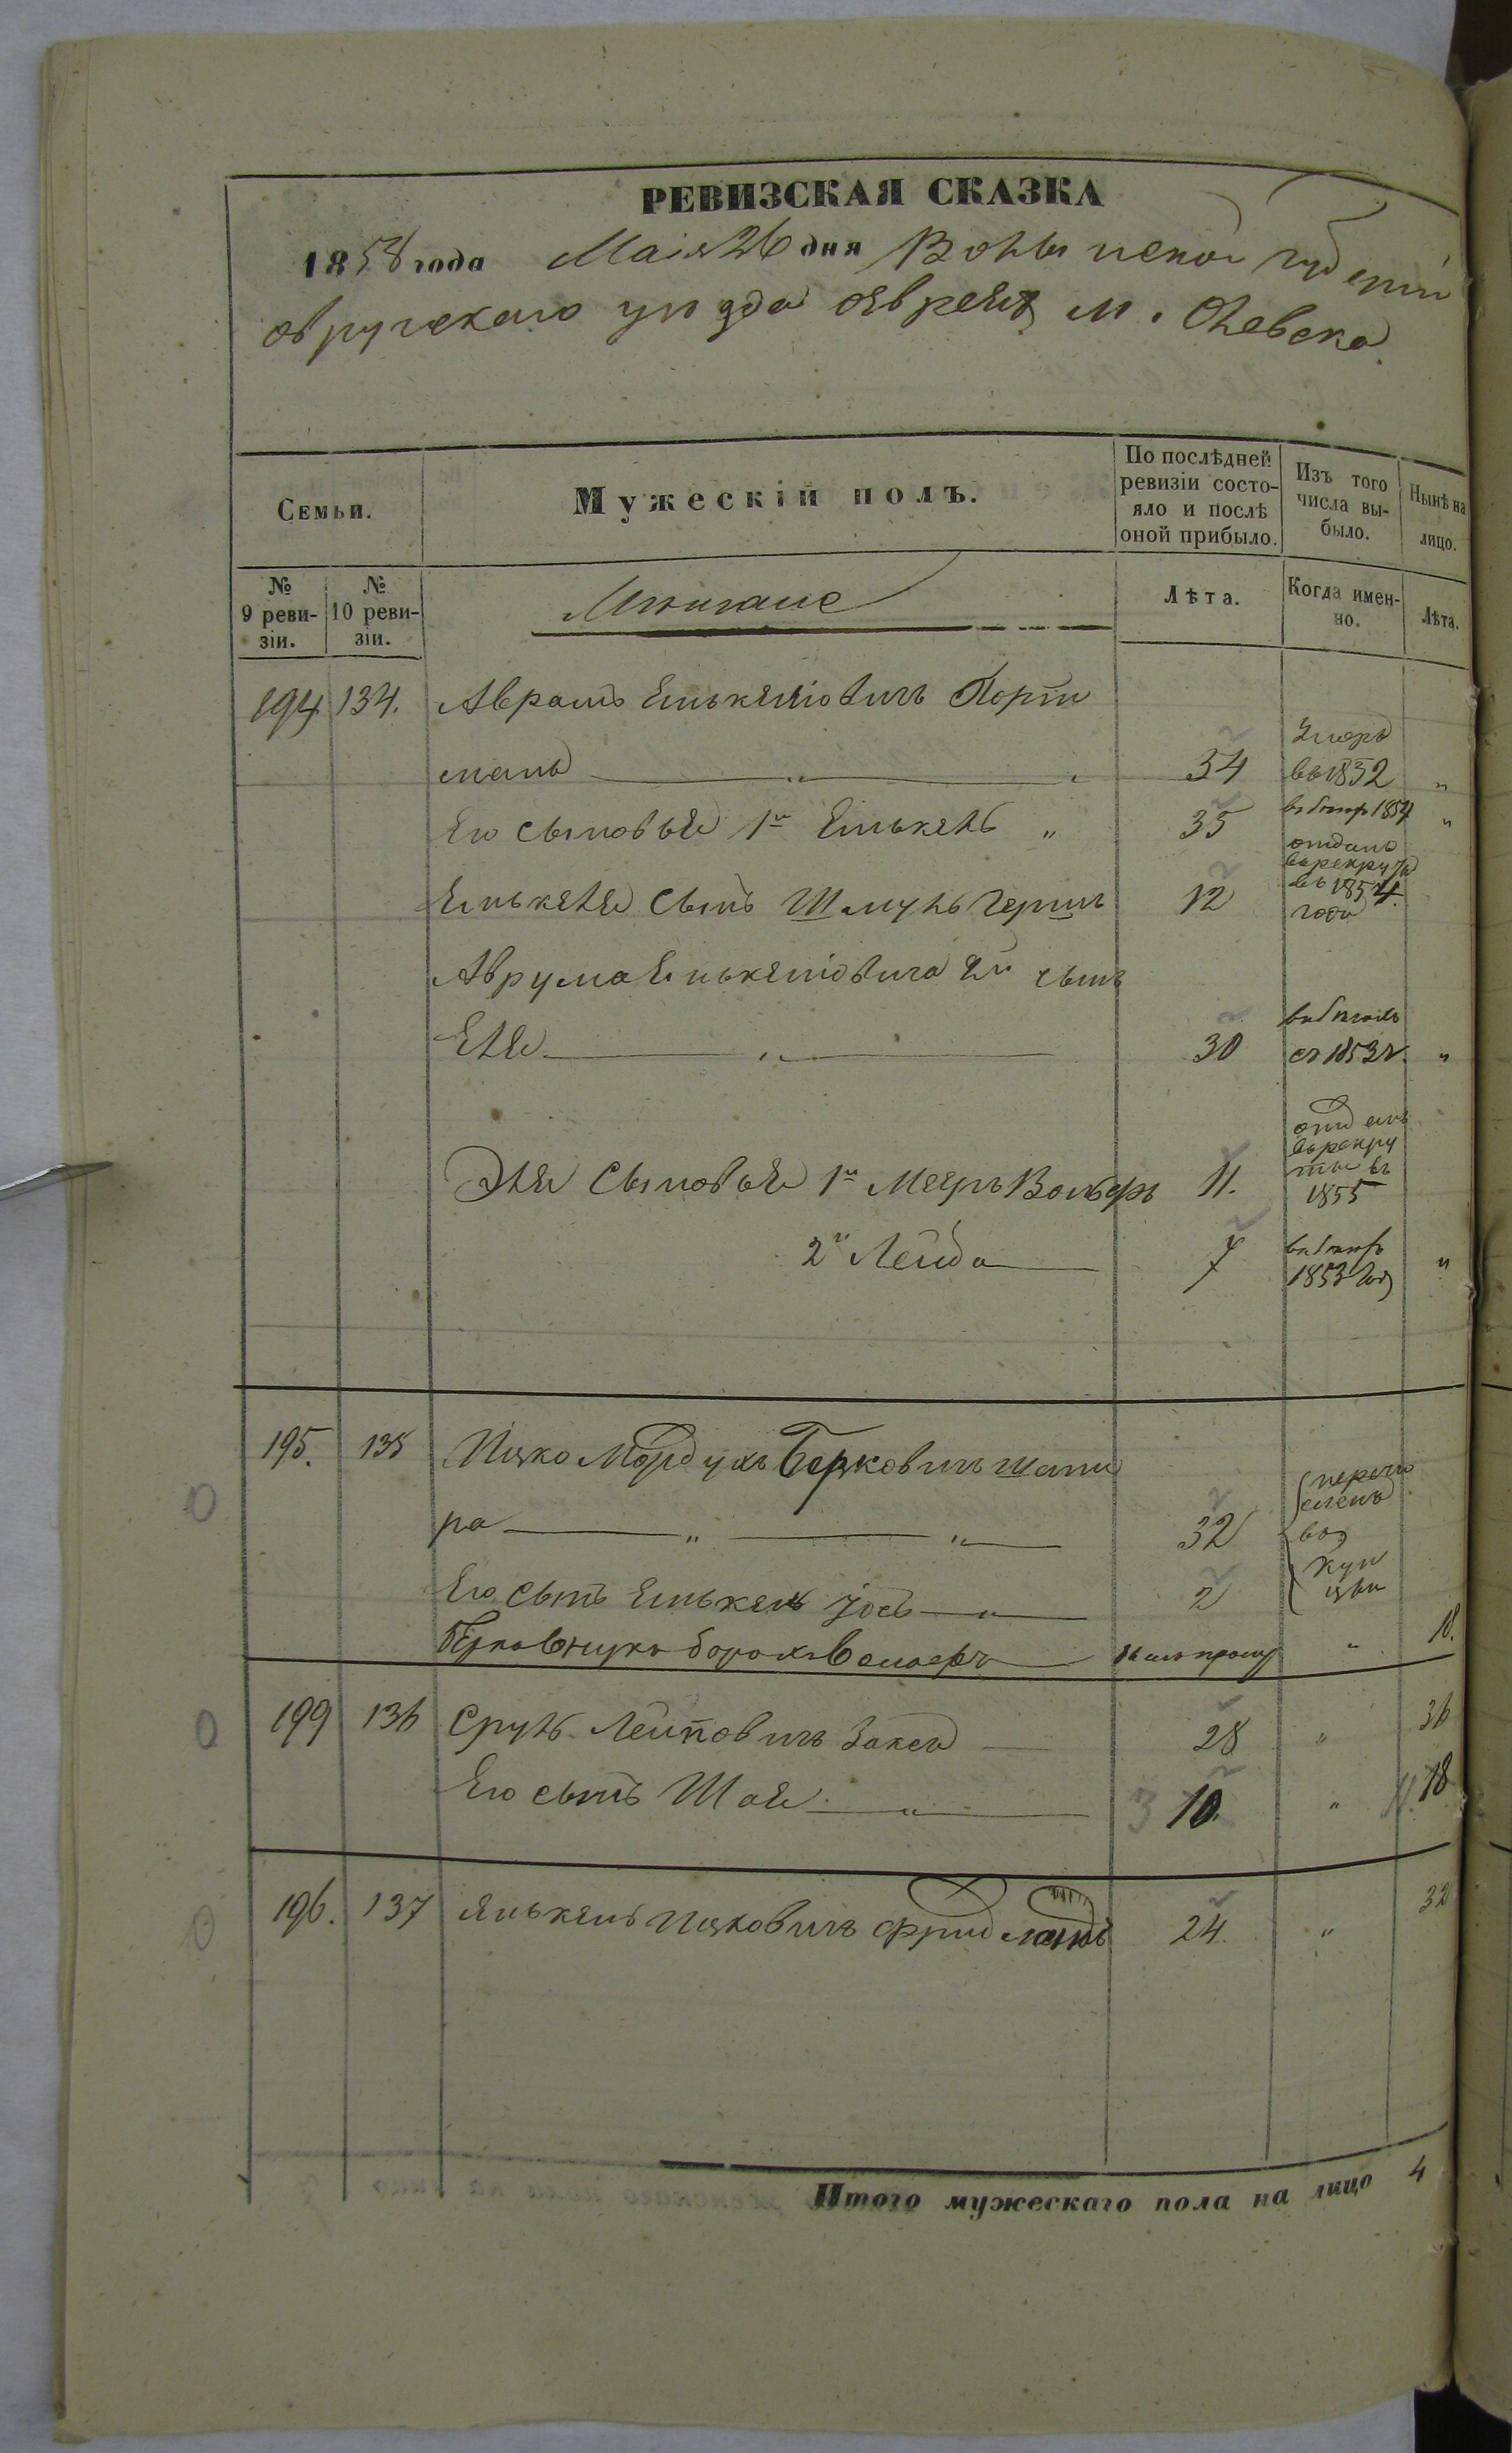 РЕВИЗСКАЯ СКАЗКА
1858 года Маія 26 дня Волынской губерніи
овручскаго уѣзда евреевъ м. Олевска
Семьи.
Мужескій полъ.
По послѣдней ревизіи состояло и послѣ оной прибыло.
Изъ того числа выбыло.
Нынѣ на лицо.
№ 9 ревизіи.
№ 10 ревизіи.
Мѣщане
Лѣта.
Когда именно.
Лѣта.
194 134. Аврамъ Енькелiовичъ Порт
манъ " 54 Умеръ въ 1852 "
Его сыновья 1й Енькель " 35 1854 "
Енькеля сынъ Шмуль Гершъ 12 отданъ въ рекруты въ 1854 года
Аврума Енькелiовича 2й сынъ
Еля " 30 съ 1853 г. "
Эля сыновья 1й Мееръ Вольфъ 11. отданъ въ рекруты въ 1855
2й Лейба 7 1853 год "
195. 135 Ицко Мордухъ Берковичъ шапи
ра " " 32 перечисленъ въ купцы
Его сынъ Енькель Іось " 2
Берка внукъ Борох " 18.
199 136 Сруль Лейбовичъ Закса 28 " 36
Его сынъ Шая " 3 10. " 11. 18
196. 137 Янькель Ицковичъ Фридландъ 24. " 32
Итого мужескаго пола на лицо 4